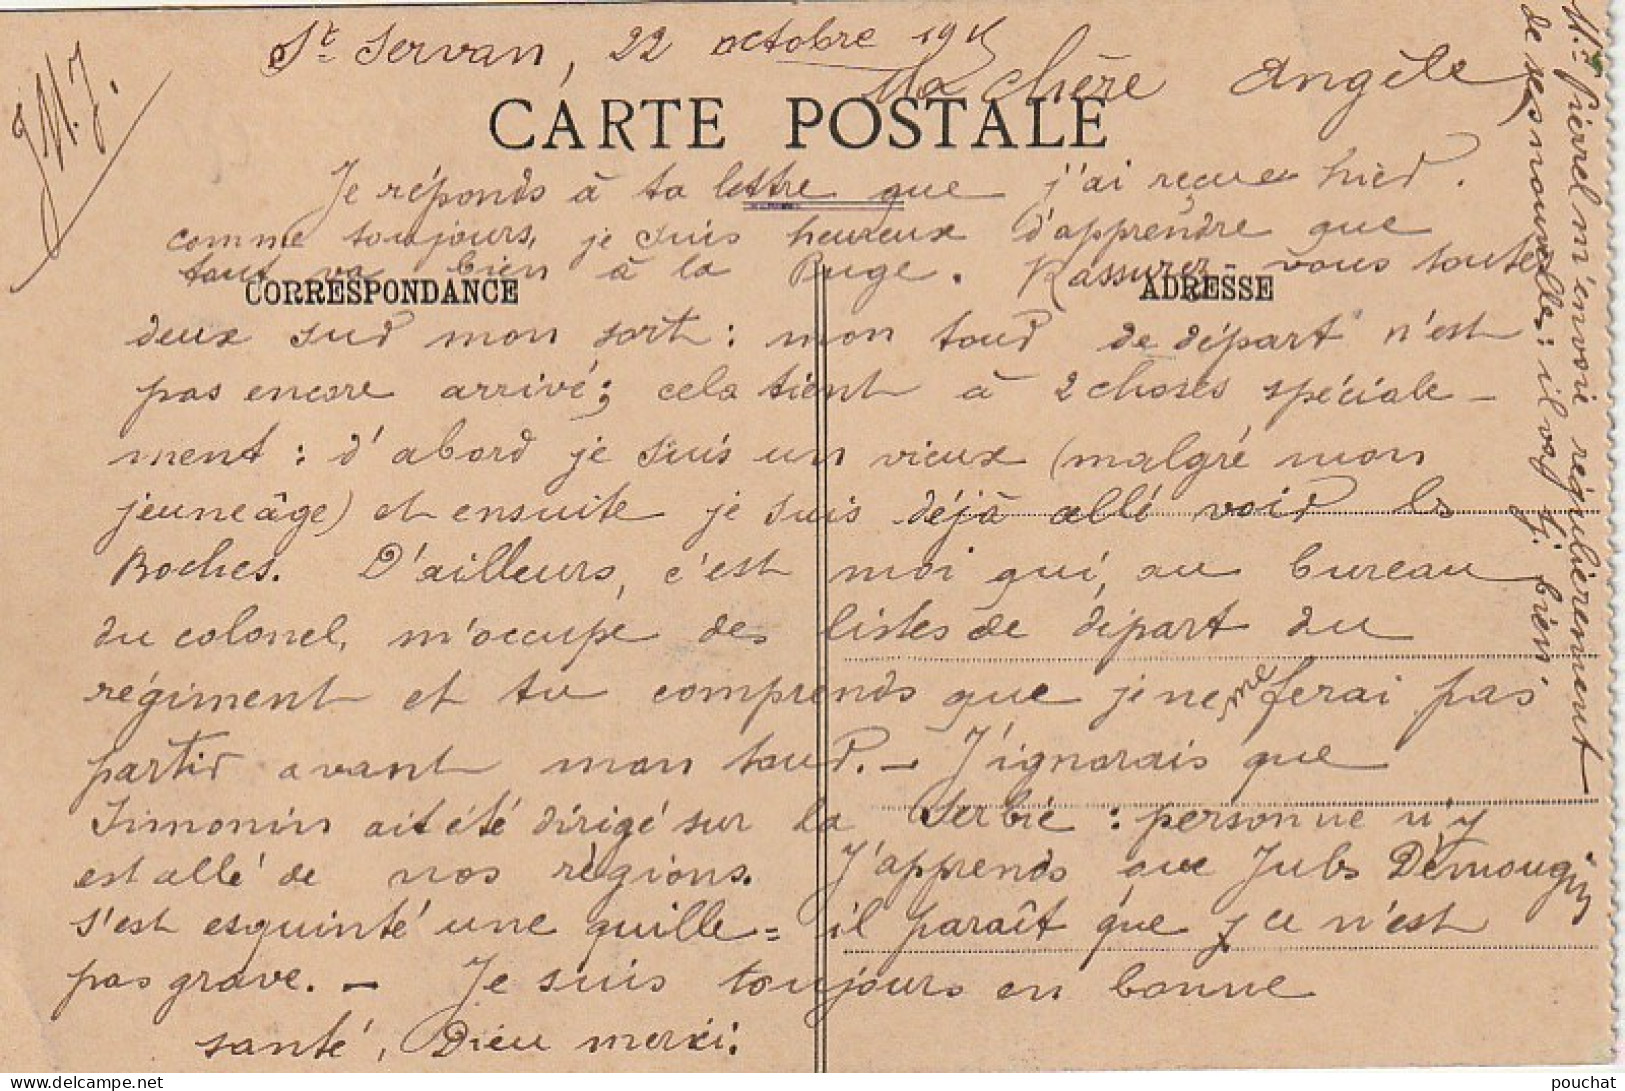 J.M.J.
St Servan, 22 octobre 1915
Ma chère Angèle,
CARTE POSTALE
Je réponds à ta lettre que j'ai reçue hier.
comme toujours, je suis heureux d'apprendre que
tout va bien à la Puge. Rassurez-vous toutes
CORRESPONDANCE
ADRESSE
deux sur mon sort : mon tour de départ n'est
pas encore arrivé ; cela tient à 2 choses spéciale-
ment : d'abord je suis un vieux (malgré mon
jeune âge) et ensuite je suis déjà allé voir les
Boches. D'ailleurs, c'est moi qui, au bureau
du colonel, m'occupe des listes de départ du
régiment et tu comprends que je ne me ferai pas
partir avant mon tour. — J'ignorais que
Simonin ait été dirigé sur la Serbie : personne n'y
est allé de nos régions. J'apprends que Jules Démougin
s'est esquinté une quille = il paraît que ce n'est
pas grave. — Je suis toujours en bonne
santé, Dieu merci.
Mr Piérrel m'envoie régulièrement
de ses nouvelles : il va tj. bien.
pouchat